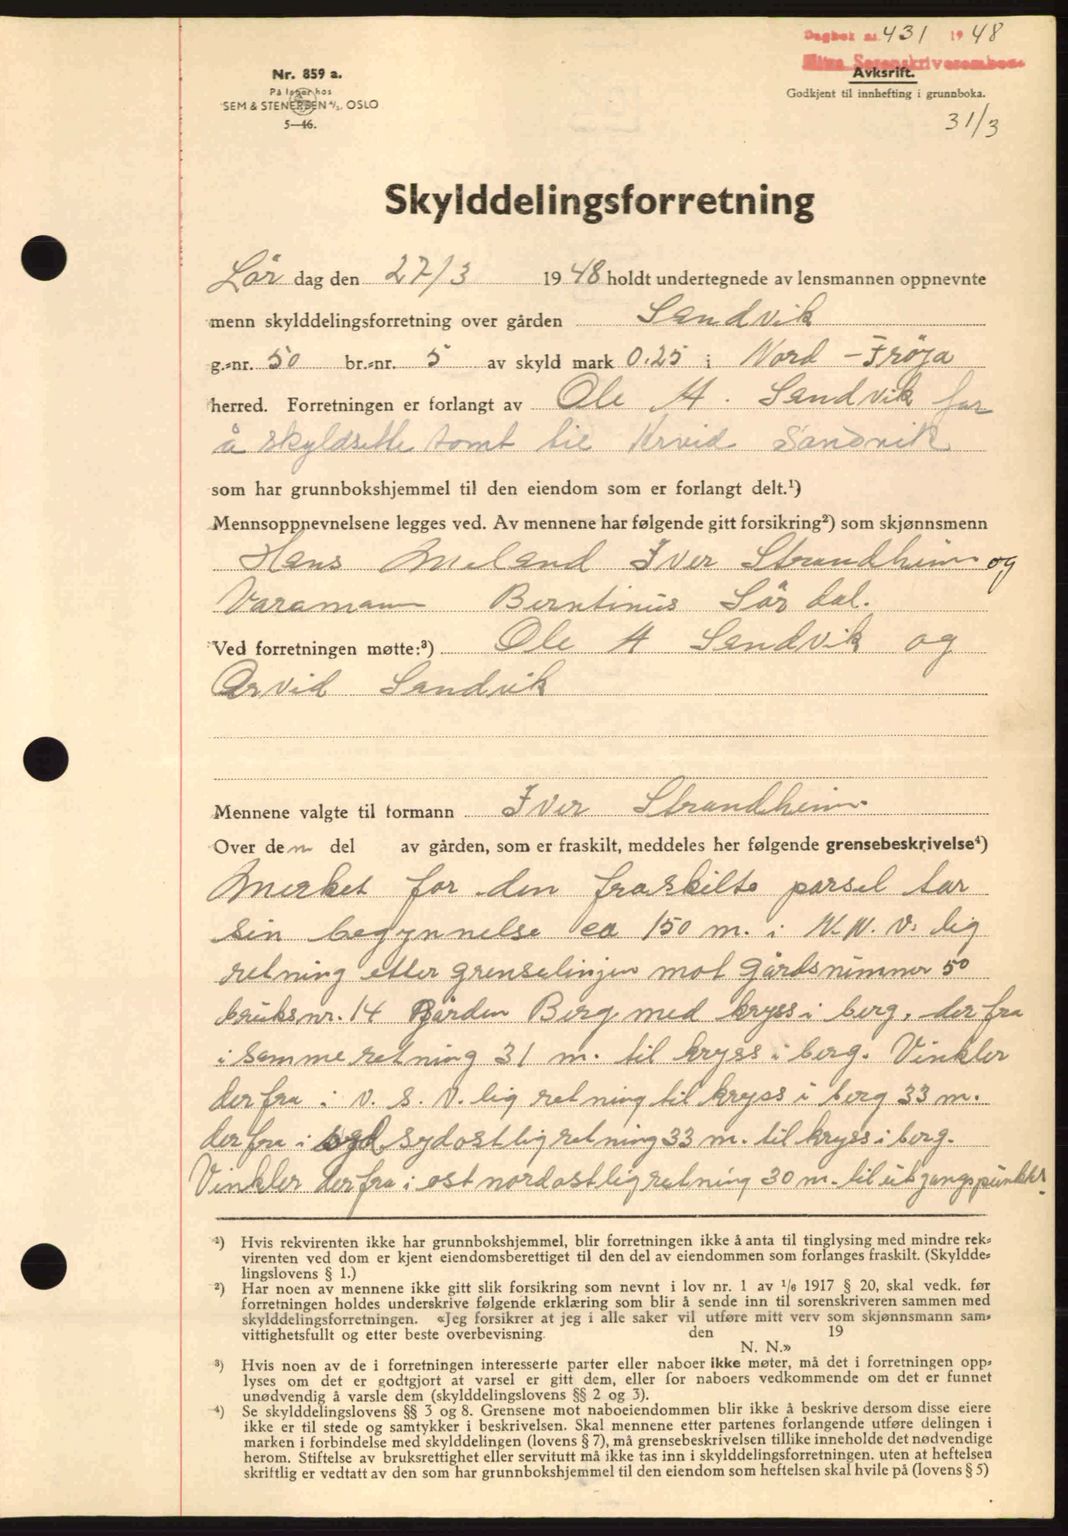 Dagbok nr. 431 1948
Hitra Sorenskriverembede
Nr. 859 a.
På lager hos
SEM & STENERSEN A/S. OSLO
5—46.
Avksrift.
Godkjent til innhefting i grunnboka.
31/3
Skylddelingsforretning
Lör dag den 27/3 1948 holdt undertegnede av lensmannen oppnevnte
menn skylddelingsforretning over gården Sandvik
g.-nr. 50 br.-nr. 5 av skyld mark 0.25 i Nord - Fröya
herred. Forretningen er forlangt av Ole A. Sandvik for
å skyldsette tomt til Arvid Sandvik
som har grunnbokshjemmel til den eiendom som er forlangt delt.¹)
Mennsoppnevnelsene legges ved. Av mennene har følgende gitt forsikring²) som skjønnsmenn
Hans Meland Iver Strandheim og
Varamann Berntinus Sördal.
Ved forretningen møtte:³) Ole A Sandvik og
Arvid Sandvik
Mennene valgte til formann Iver Strandheim.
Over den del av gården, som er fraskilt, meddeles her følgende grensebeskrivelse⁴)
Merket for den fraskilte parsel tar
sin begynnelse ca 150 m. i N.N.V. lig
retning etter grenselinjen mot gårdsnummer 50
bruksnr. 14 Gården Berg med kryss i berg. derfra
i samme retning 31 m. til kryss i berg. Vinkler
derfra i V. S. V. lig retning til kryss i berg 33 m.
derfra i sydostlig retning 33 m. til kryss i berg.
Vinkler derfra i ost nordostlig retning 30 m. til utgangspunktet.
¹) Hvis rekvirenten ikke har grunnbokshjemmel, blir forretningen ikke å anta til tinglysing med mindre rek-
virenten ved dom er kjent eiendomsberettiget til den del av eiendommen som forlanges fraskilt. (Skyldde-
lingslovens § 1.)
²) Har noen av mennene ikke gitt slik forsikring som nevnt i lov nr. 1 av 1/6 1917 § 20, skal vedk. før
forretningen holdes underskrive følgende erklæring som blir å sende inn til sorenskriveren sammen med
skylddelingsforretningen. «Jeg forsikrer at jeg i alle saker vil utføre mitt verv som skjønnsmann sam-
vittighetsfullt og etter beste overbevisning. den 19
N. N.»
³) Hvis noen av de i forretningen interesserte parter eller naboer ikke møter, må det i forretningen opp-
lyses om det er godtgjort at varsel er gitt dem, eller for naboers vedkommende om det er funnet
unødvendig å varsle dem (skylddelingslovens §§ 2 og 3).
⁴) Se skylddelingslovens §§ 3 og 8. Grensene mot naboeiendommen blir ikke å beskrive dersom disse eiere
ikke er til stede og samtykker i beskrivelsen. Skal mennene etter partenes forlangende utføre delingen i
marken i forbindelse med skylddelingen (lovens § 7), må grensebeskrivelsen tillike inneholde det nødvendige
herom. Stiftelse av bruksrettighet eller servitutt må ikke tas inn i skylddelingsforretningen. uten at heftelsen
skriftlig er vedtatt av den som har grunnbokshjemmel til den eiendom som heftelsen skal hvile på (lovens § 5)